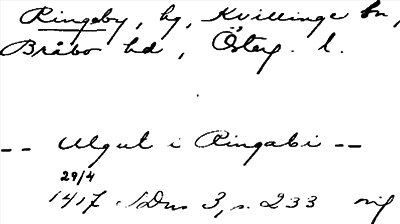 Ringeby, by, Kvillinge sn,
Bråbo hd, Österg. l.
-- Ulgut i Ringabi --
29/4
1417 SDns 3, s. 233 orig